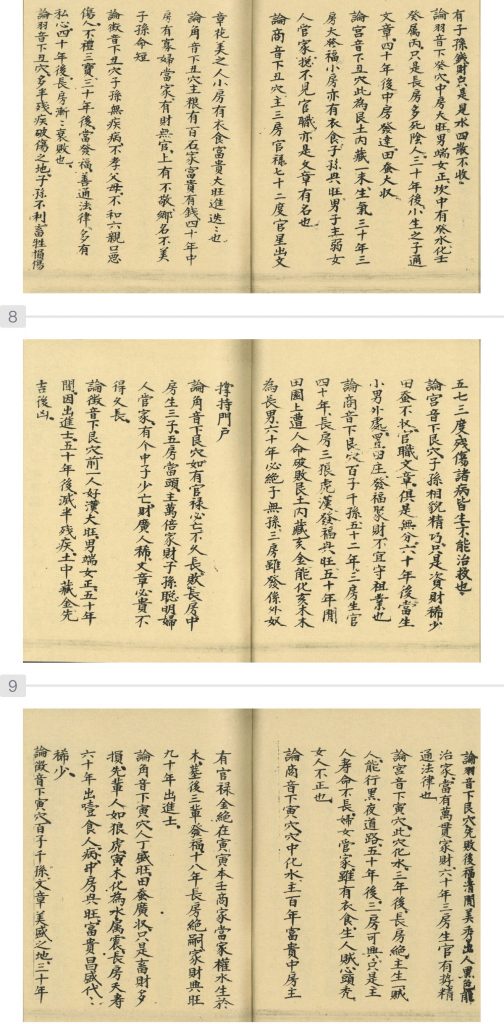 有子孫錢財只是見水四散不收
論羽音下癸穴中房大旺男端女正坎中有癸水化壬
癸属丙只是長房多死陰人三十年後小生之子通
文章四十年後中房發達田蚕大収
論宮音下丑穴此為艮土內藏一末生氣三十年三
房大發福小房亦有衣食子孫興旺男子主弱女
人管家摠不見官職亦是文章有名也
論商音下丑穴主三房官祿七十二度官星出文
章花美之人小房有衣食富貴大旺進迭〻也
論角音下丑穴主根有百石家富貴有錢四十年中
房有寡婦當家有財無官上有不敬鄉名不美
子孫命短
論徵音下丑穴子孫無疾病不孝父母不和六親口惡
傷人不禮三寶三十年後當發福善通法律多有
私心四十年後長房漸〻衰敗也
論羽音下丑穴多半残疾破傷之地子孫不利畜牲損傷
8
五七三度残傷諸病皆生不能治救也
論宮音下艮穴子孫相貌精巧只是姿財稀少
田蚕不収官職文章俱是無分六十年後當生
小男外處置田庄發福聚財不宜守祖業也
論商音下艮穴百子千孫五十二年三房生官
四十年長房三狼虎漢發福興旺五十年間
田園上遭人命破敗艮土內藏亥金能化亥木木
為長男六十年必絕子無孫三房雖發係外奴
撑持門戶
論角音下艮穴如有官祿必亡不久長敗長房中
房生三子五房當頭主萬倍家財子孫聰明婦
人管家有个中子少亡財廣人稀文章必貴不
得久長
論徵音下艮穴前一人好漢大旺男端女正五十年
間因出進士五十年後減半残疾土中藏金先
吉後凶
9
論羽音下艮穴先敗後福清閒美秀出人黑色能
治家當有萬貫家財六十年三房生官有哲精
通法律也
論宮音下寅穴此穴化水三年後長房絕主生一賊
人能行黑夜道路五十年後二房可興只是主
人壽命不長婦女管家雖有衣食生人賊心頭禿
女人不正也
論商音下寅穴穴中化水主百年富貴中房主
有官祿金絕在寅寅本士商家當家權水生於
木墓後三輩發福十八年長房絕嗣家財興旺
九十年出進士
論角音下寅穴人丁盛旺田蚕廣収只是畜財多
損先輩人如狼虎寅木化為水属震長房夭壽
六十年出壹食人病中房興旺富貴昌盛代〻
稀少
論徵音下寅穴百子千孫文章美盛之地三十年